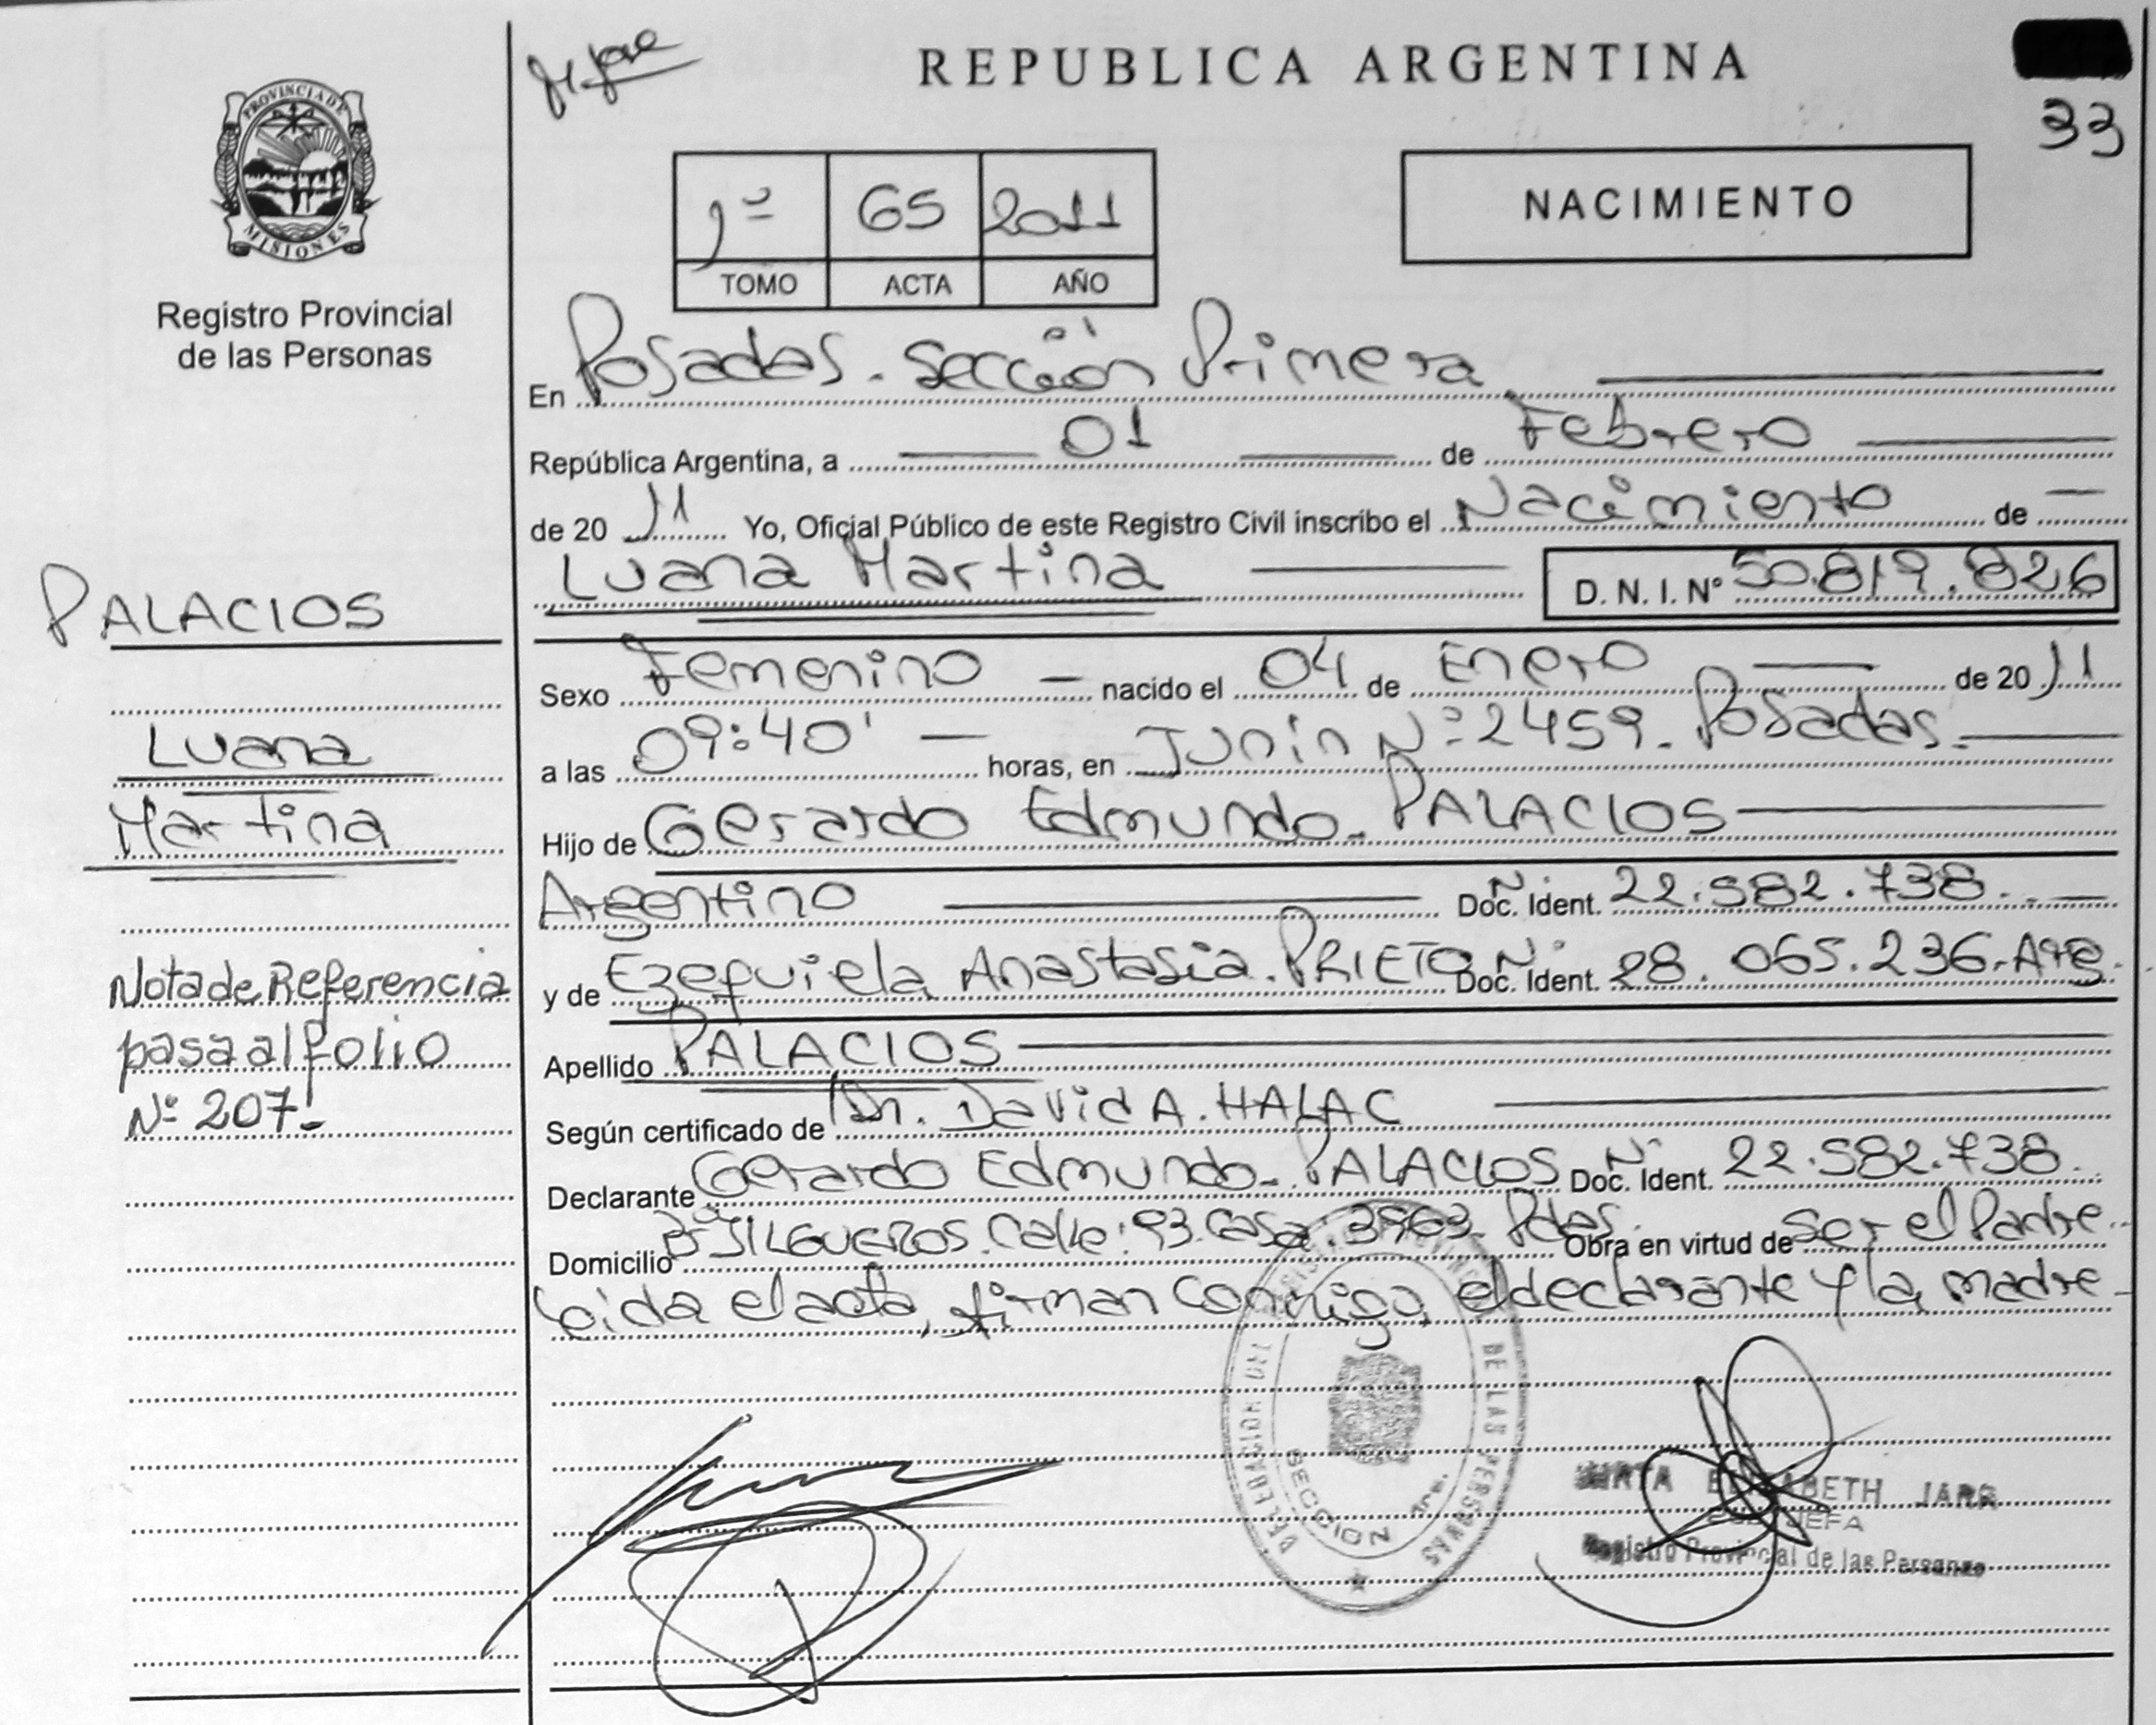 REPUBLICA ARGENTINA
33
PROVINCIA DE
MISIONES
Registro Provincial
de las Personas
1º 65 2011
TOMO ACTA AÑO
NACIMIENTO
En Posadas. Sección Primera
República Argentina, a 01 de Febrero
de 20 11 Yo, Oficial Público de este Registro Civil inscribo el Nacimiento de
Luana Martina D. N. I. Nº 50.819.826
PALACIOS
Luana
Martina
Nota de Referencia
pasa al folio
Nº 207.-
Sexo Femenino nacido el 04 de Enero de 20 11
a las 09:40' horas, en Junín Nº 2459. Posadas.
Hijo de Gerardo Edmundo. PALACIOS
Argentino Doc. Ident. Nº 22.582.738.
y de Ezequiela Anastasia. PRIETO Doc. Ident. Nº 28.065.236. Arg.
Apellido PALACIOS
Según certificado de Dr. David A. HALAC
Declarante Gerardo Edmundo. PALACIOS Doc. Ident. Nº 22.582.738.
Domicilio Bº JILGUEROS. Calle: 93. Casa. 3963. Pdas. Obra en virtud de Ser el Padre.
Leída el acta, firman conmigo, el declarante y la madre
DE LAS PERSONAS
SECCION 1ra.
ELISABETH
JEFA
Registro Provincial de las Personas